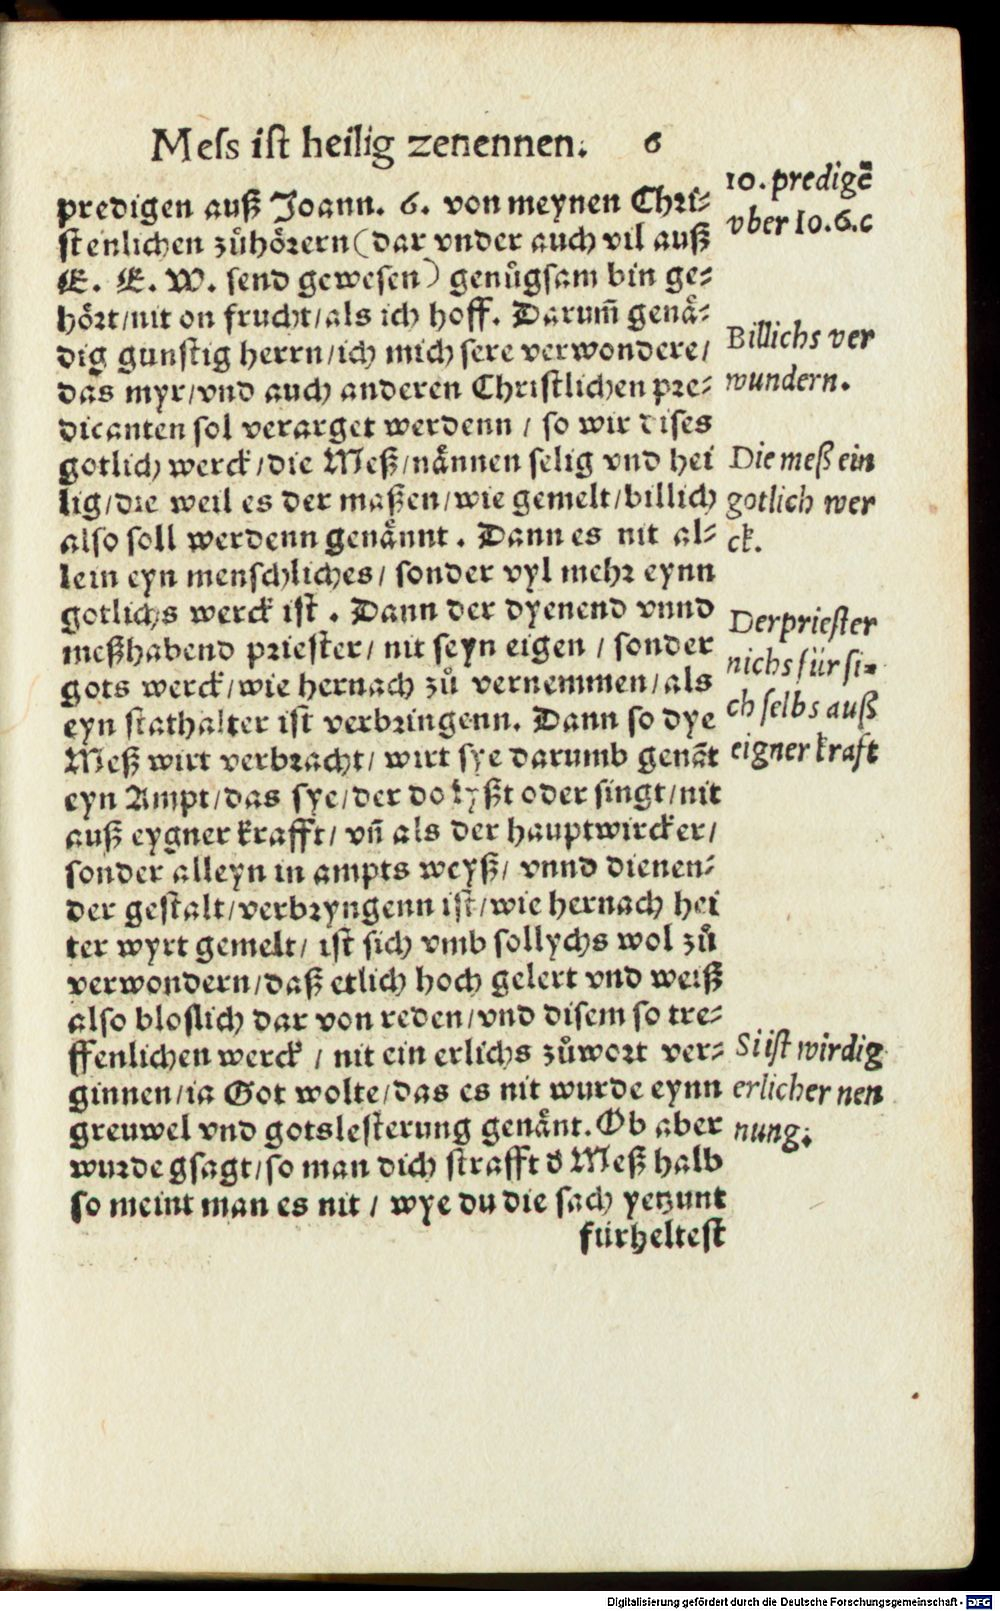 Mess ist heilig zenennen. 6
predigen auß Joann. 6. von meynen Chri-
stenlichen zůhörern (dar vnder auch vil auß
E. E. W. send gewesen) genůgsam bin ge-
hört/nit on frucht/als ich hoff. Darum̄ genä-
dig gunstig herrn/ich mich sere verwondere/
das myr/vnd auch anderen Christlichen pre-
dicanten sol verarget werdenn / so wir dises
gotlich werck/die Meß/nännen selig vnd hei
lig/die weil es der maßen/wie gemelt/billich
also soll werdenn genännt. Dann es nit al-
lein eyn menschliches/ sonder vyl mehr eynn
gotlichs werck ist. Dann der dyenend vnnd
meßhabend priester/ nit seyn eigen / sonder
gots werck/wie hernach zů vernemmen/als
eyn stathalter ist verbringenn. Dann so dye
Meß wirt verbracht/ wirt sye darumb genāt
eyn Ampt/das sye/der do lyßt oder singt/nit
auß eygner krafft/ vn̄ als der hauptwircker/
sonder alleyn in ampts weyß/ vnnd dienen-
der gestalt/verbryngenn ist/wie hernach hei
ter wyrt gemelt/ ist sich vmb sollychs wol zů
verwondern/daß etlich hoch gelert vnd weiß
also bloslich dar von reden/vnd disem so tre-
ffenlichen werck / nit ein erlichs zůwort ver-
ginnen/ia Got wolte/das es nit wurde eynn
greuwel vnd gotslesterung genānt. Ob aber
wurde gsagt/so man dich strafft d̄ Meß halb
so meint man es nit / wye du die sach yetzunt
fürheltest
10. predigē
vber Io. 6. c
Billichs ver
wundern.
Die meß ein
gotlich wer
ck.
Der priester
nichs für si-
ch selbs auß
eigner kraft
Si ist wirdig
erlicher nen
nung.
Digitalisierung gefördert durch die Deutsche Forschungsgemeinschaft - DFG